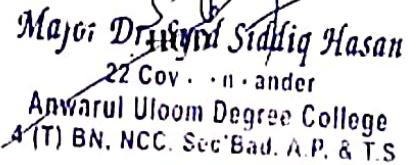 Major Dr. Syed Siddiq Hasan
22 Coy
Anwarul Uloom Degree College
4 (T) BN, NCC. Sec'Bad. A.P. & T.S